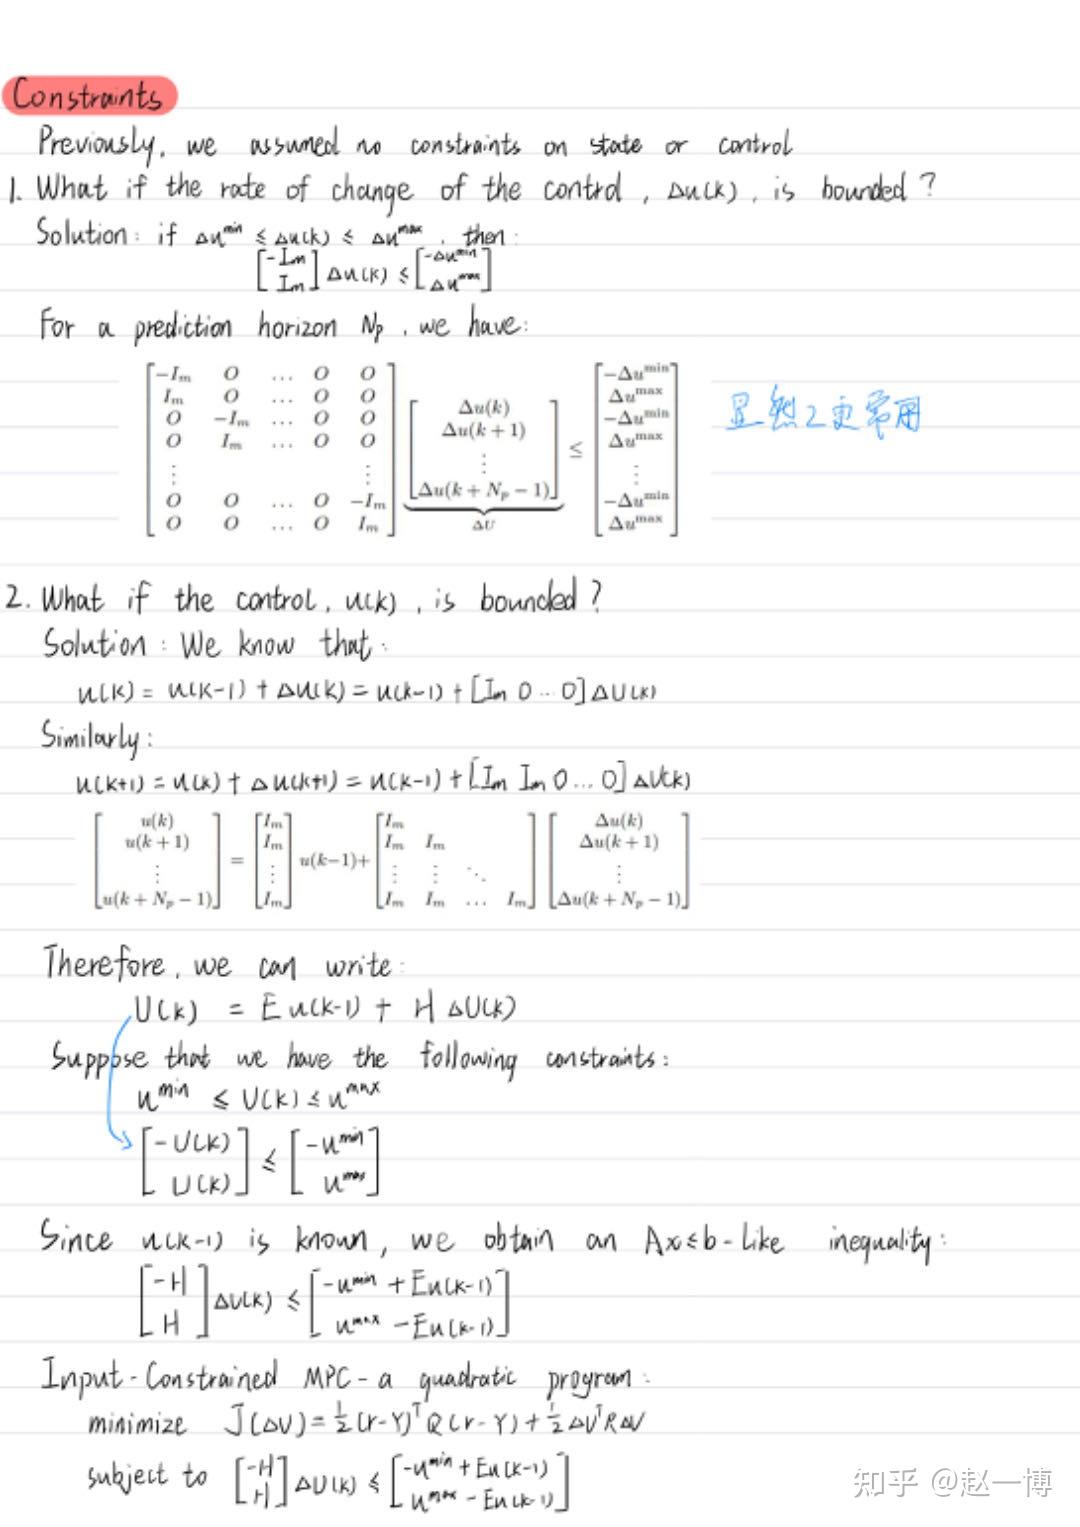 Constraints
Previously, we assumed no constraints on state or control
1. What if the rate of change of the control, Δu(k), is bounded?
Solution: if Δu^min ≤ Δu(k) ≤ Δu^max, then:
[-Im; Im] Δu(k) ≤ [-Δu^min; Δu^max]
For a prediction horizon Np, we have:
[-Im O ... O O; Im O ... O O; O -Im ... O O; O Im ... O O; ⋮ ⋮; O O ... O -Im; O O ... O Im] [Δu(k); Δu(k+1); ⋮; Δu(k+Np-1)] ≤ [-Δu^min; Δu^max; -Δu^min; Δu^max; ⋮; -Δu^min; Δu^max]
ΔU
显然2更常用
2. What if the control, u(k), is bounded?
Solution: We know that:
u(k) = u(k-1) + Δu(k) = u(k-1) + [Im 0 ... 0] ΔU(k)
Similarly:
u(k+1) = u(k) + Δu(k+1) = u(k-1) + [Im Im 0 ... 0] ΔU(k)
[u(k); u(k+1); ⋮; u(k+Np-1)] = [Im; Im; ⋮; Im] u(k-1) + [Im; Im Im; ⋮ ⋮ ⋱; Im Im ... Im] [Δu(k); Δu(k+1); ⋮; Δu(k+Np-1)]
Therefore, we can write:
U(k) = E u(k-1) + H ΔU(k)
Suppose that we have the following constraints:
u^min ≤ U(k) ≤ u^max
[-U(k); U(k)] ≤ [-u^min; u^max]
Since u(k-1) is known, we obtain an Ax≤b-like inequality:
[-H; H] ΔU(k) ≤ [-u^min + Eu(k-1); u^max - Eu(k-1)]
Input-Constrained MPC - a quadratic program:
minimize J(ΔU) = ½(r-Y)^T Q(r-Y) + ½ΔU^T R ΔU
subject to [-H; H] ΔU(k) ≤ [-u^min + Eu(k-1); u^max - Eu(k-1)]
知乎 @赵一博